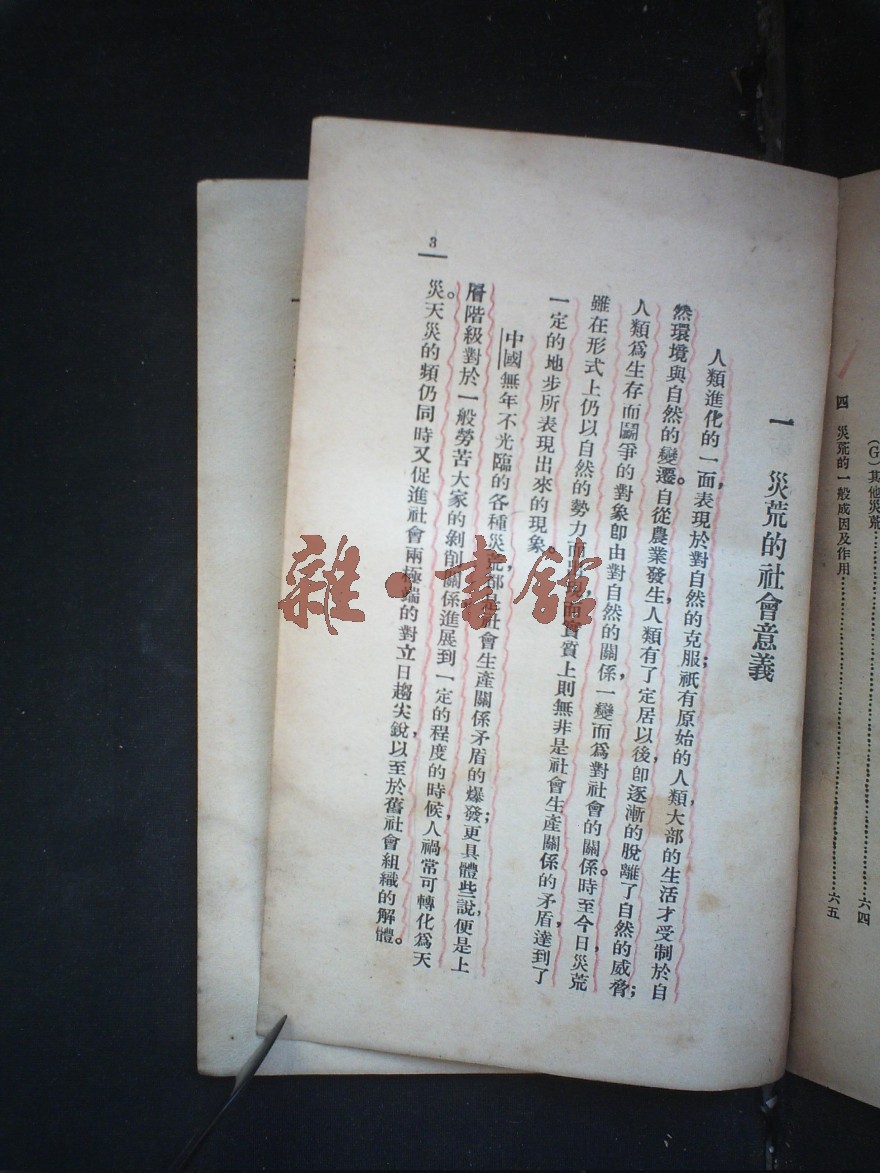 (G)其他災荒……六四
四　災荒的一般成因及作用……六五
一　災荒的社會意義
人類進化的一面，表現於對自然的克服；祇有原始的人類，大部的生活才受制於自
然環境與自然的變遷。自從農業發生，人類有了定居以後，卽逐漸的脫離了自然的威脅；
人類爲生存而鬭爭的對象卽由對自然的關係，一變而爲對社會的關係。時至今日，災荒
雖在形式上仍以自然的勢力而出現，而實質上則無非是社會生產關係的矛盾達到了
一定的地步所表現出來的現象。
中國無年不光臨的各種災荒，都是社會生產關係矛盾的爆發；更具體些說，便是上
層階級對於一般勞苦大家的剝削關係進展到一定的程度的時候，人禍常可轉化爲天
災。天災的頻仍同時又促進社會兩極端的對立日趨尖銳，以至於舊社會組織的解體。
3
雜·書館